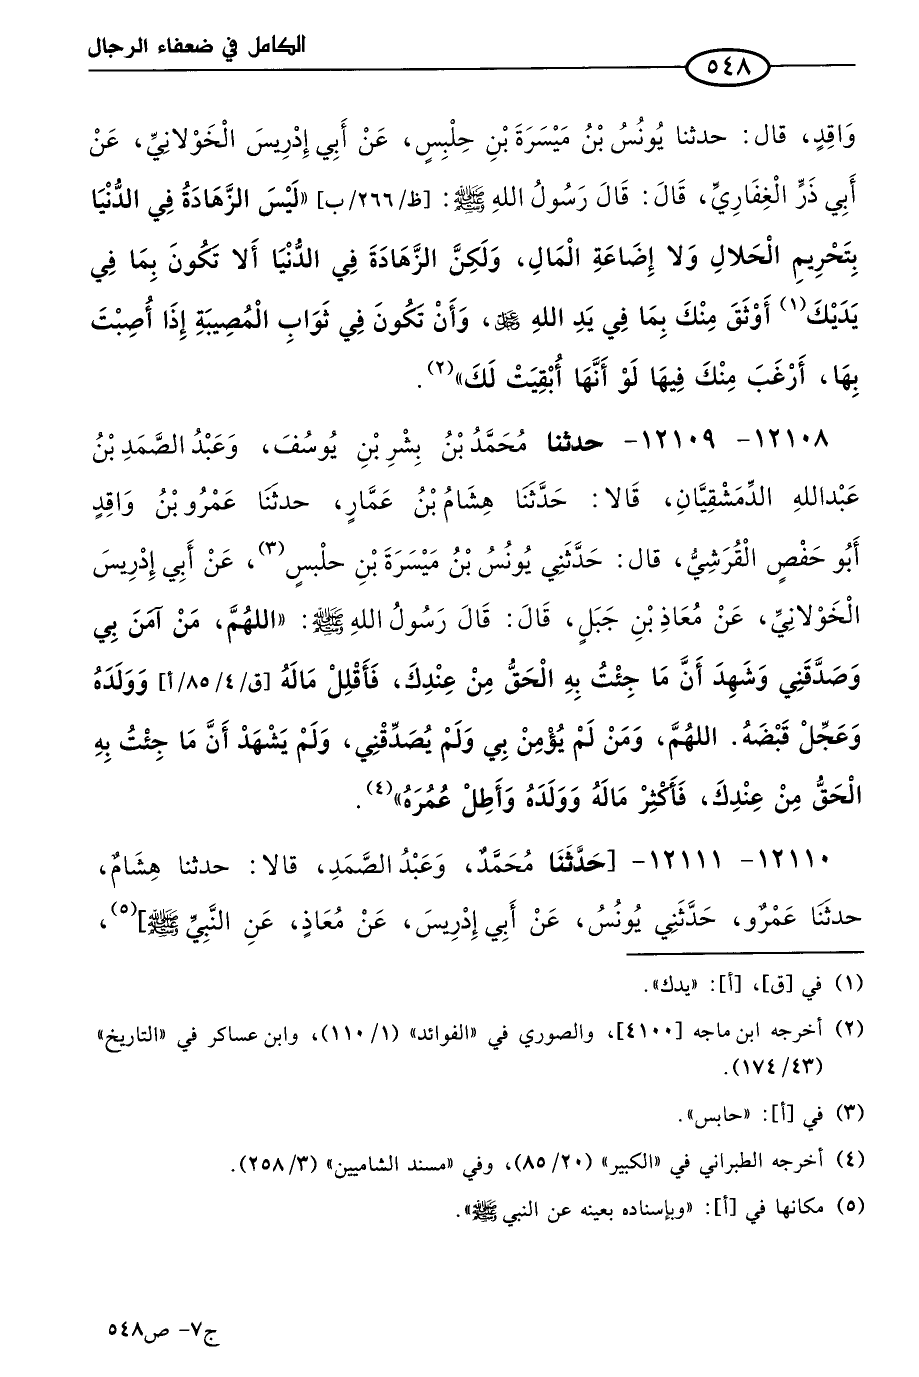 الكامل في ضعفاء الرجال
٥٤٨
وَاقِدٍ، قال: حدثنا يُونُسُ بْنُ مَيْسَرَةَ بْنِ حِلْبِسٍ، عَنْ أَبِي إِدْرِيسَ الْخَوْلانِيِّ، عَنْ
أَبِي ذَرٍّ الْغِفَارِيِّ، قَالَ: قَالَ رَسُولُ اللهِ ﷺ: [ظ/٢٦٦/ب] «لَيْسَ الزَّهَادَةُ فِي الدُّنْيَا
بِتَحْرِيمِ الْحَلالِ وَلا إِضَاعَةِ الْمَالِ، وَلَكِنَّ الزَّهَادَةَ فِي الدُّنْيَا أَلا تَكُونَ بِمَا فِي
يَدَيْكَ(١) أَوْثَقَ مِنْكَ بِمَا فِي يَدِ اللهِ ﷻ، وَأَنْ تَكُونَ فِي ثَوَابِ الْمُصِيبَةِ إِذَا أُصِبْتَ
بِهَا، أَرْغَبَ مِنْكَ فِيهَا لَوْ أَنَّهَا أُبْقِيَتْ لَكَ»(٢).
١٢١٠٨- ١٢١٠٩- حدثنا مُحَمَّدُ بْنُ بِشْرِ بْنِ يُوسُفَ، وَعَبْدُ الصَّمَدِ بْنُ
عَبْدالله الدِّمَشْقِيَّانِ، قَالا: حَدَّثَنَا هِشَامُ بْنُ عَمَّارٍ، حدثَنَا عَمْرُو بْنُ وَاقِدٍ
أَبُو حَفْصٍ الْقُرَشِيُّ، قال: حَدَّثَنِي يُونُسُ بْنُ مَيْسَرَةَ بْنِ حلْبسٍ(٣)، عَنْ أَبِي إِدْرِيسَ
الْخَوْلانِيِّ، عَنْ مُعَاذِ بْنِ جَبَلٍ، قَالَ: قَالَ رَسُولُ اللهِ ﷺ: «اللهُمَّ، مَنْ آمَنَ بِي
وَصَدَّقَنِي وَشَهِدَ أَنَّ مَا جِئْتُ بِهِ الْحَقُّ مِنْ عِنْدِكَ، فَأَقْلِلْ مَالَهُ [ق/٨٥/٤/أ] وَوَلَدَهُ
وَعَجِّلْ قَبْضَهُ. اللهُمَّ، وَمَنْ لَمْ يُؤْمِنْ بِي وَلَمْ يُصَدِّقْنِي، وَلَمْ يَشْهَدْ أَنَّ مَا جِئْتُ بِهِ
الْحَقُّ مِنْ عِنْدِكَ، فَأَكْثِرْ مَالَهُ وَوَلَدَهُ وَأَطِلْ عُمُرَهُ»(٤).
١٢١١٠- ١٢١١١- [حَدَّثَنَا مُحَمَّدٌ، وَعَبْدُ الصَّمَدِ، قالا: حدثنا هِشَامٌ،
حدثَنَا عَمْرٌو، حَدَّثَنِي يُونُسُ، عَنْ أَبِي إِدْرِيسَ، عَنْ مُعَاذٍ، عَنِ النَّبِيِّ ﷺ](٥)،
(١) في [ق]، [أ]: «يدك».
(٢) أخرجه ابن ماجه [٤١٠٠]، والصوري في «الفوائد» (١١٠/١)، وابن عساكر في «التاريخ»
(١٧٤/٤٣).
(٣) في [أ]: «حابس».
(٤) أخرجه الطبراني في «الكبير» (٨٥/٢٠)، وفي «مسند الشاميين» (٢٥٨/٣).
(٥) مكانها في [أ]: «وبإسناده بعينه عن النبي ﷺ».
ج٧- ص٥٤٨